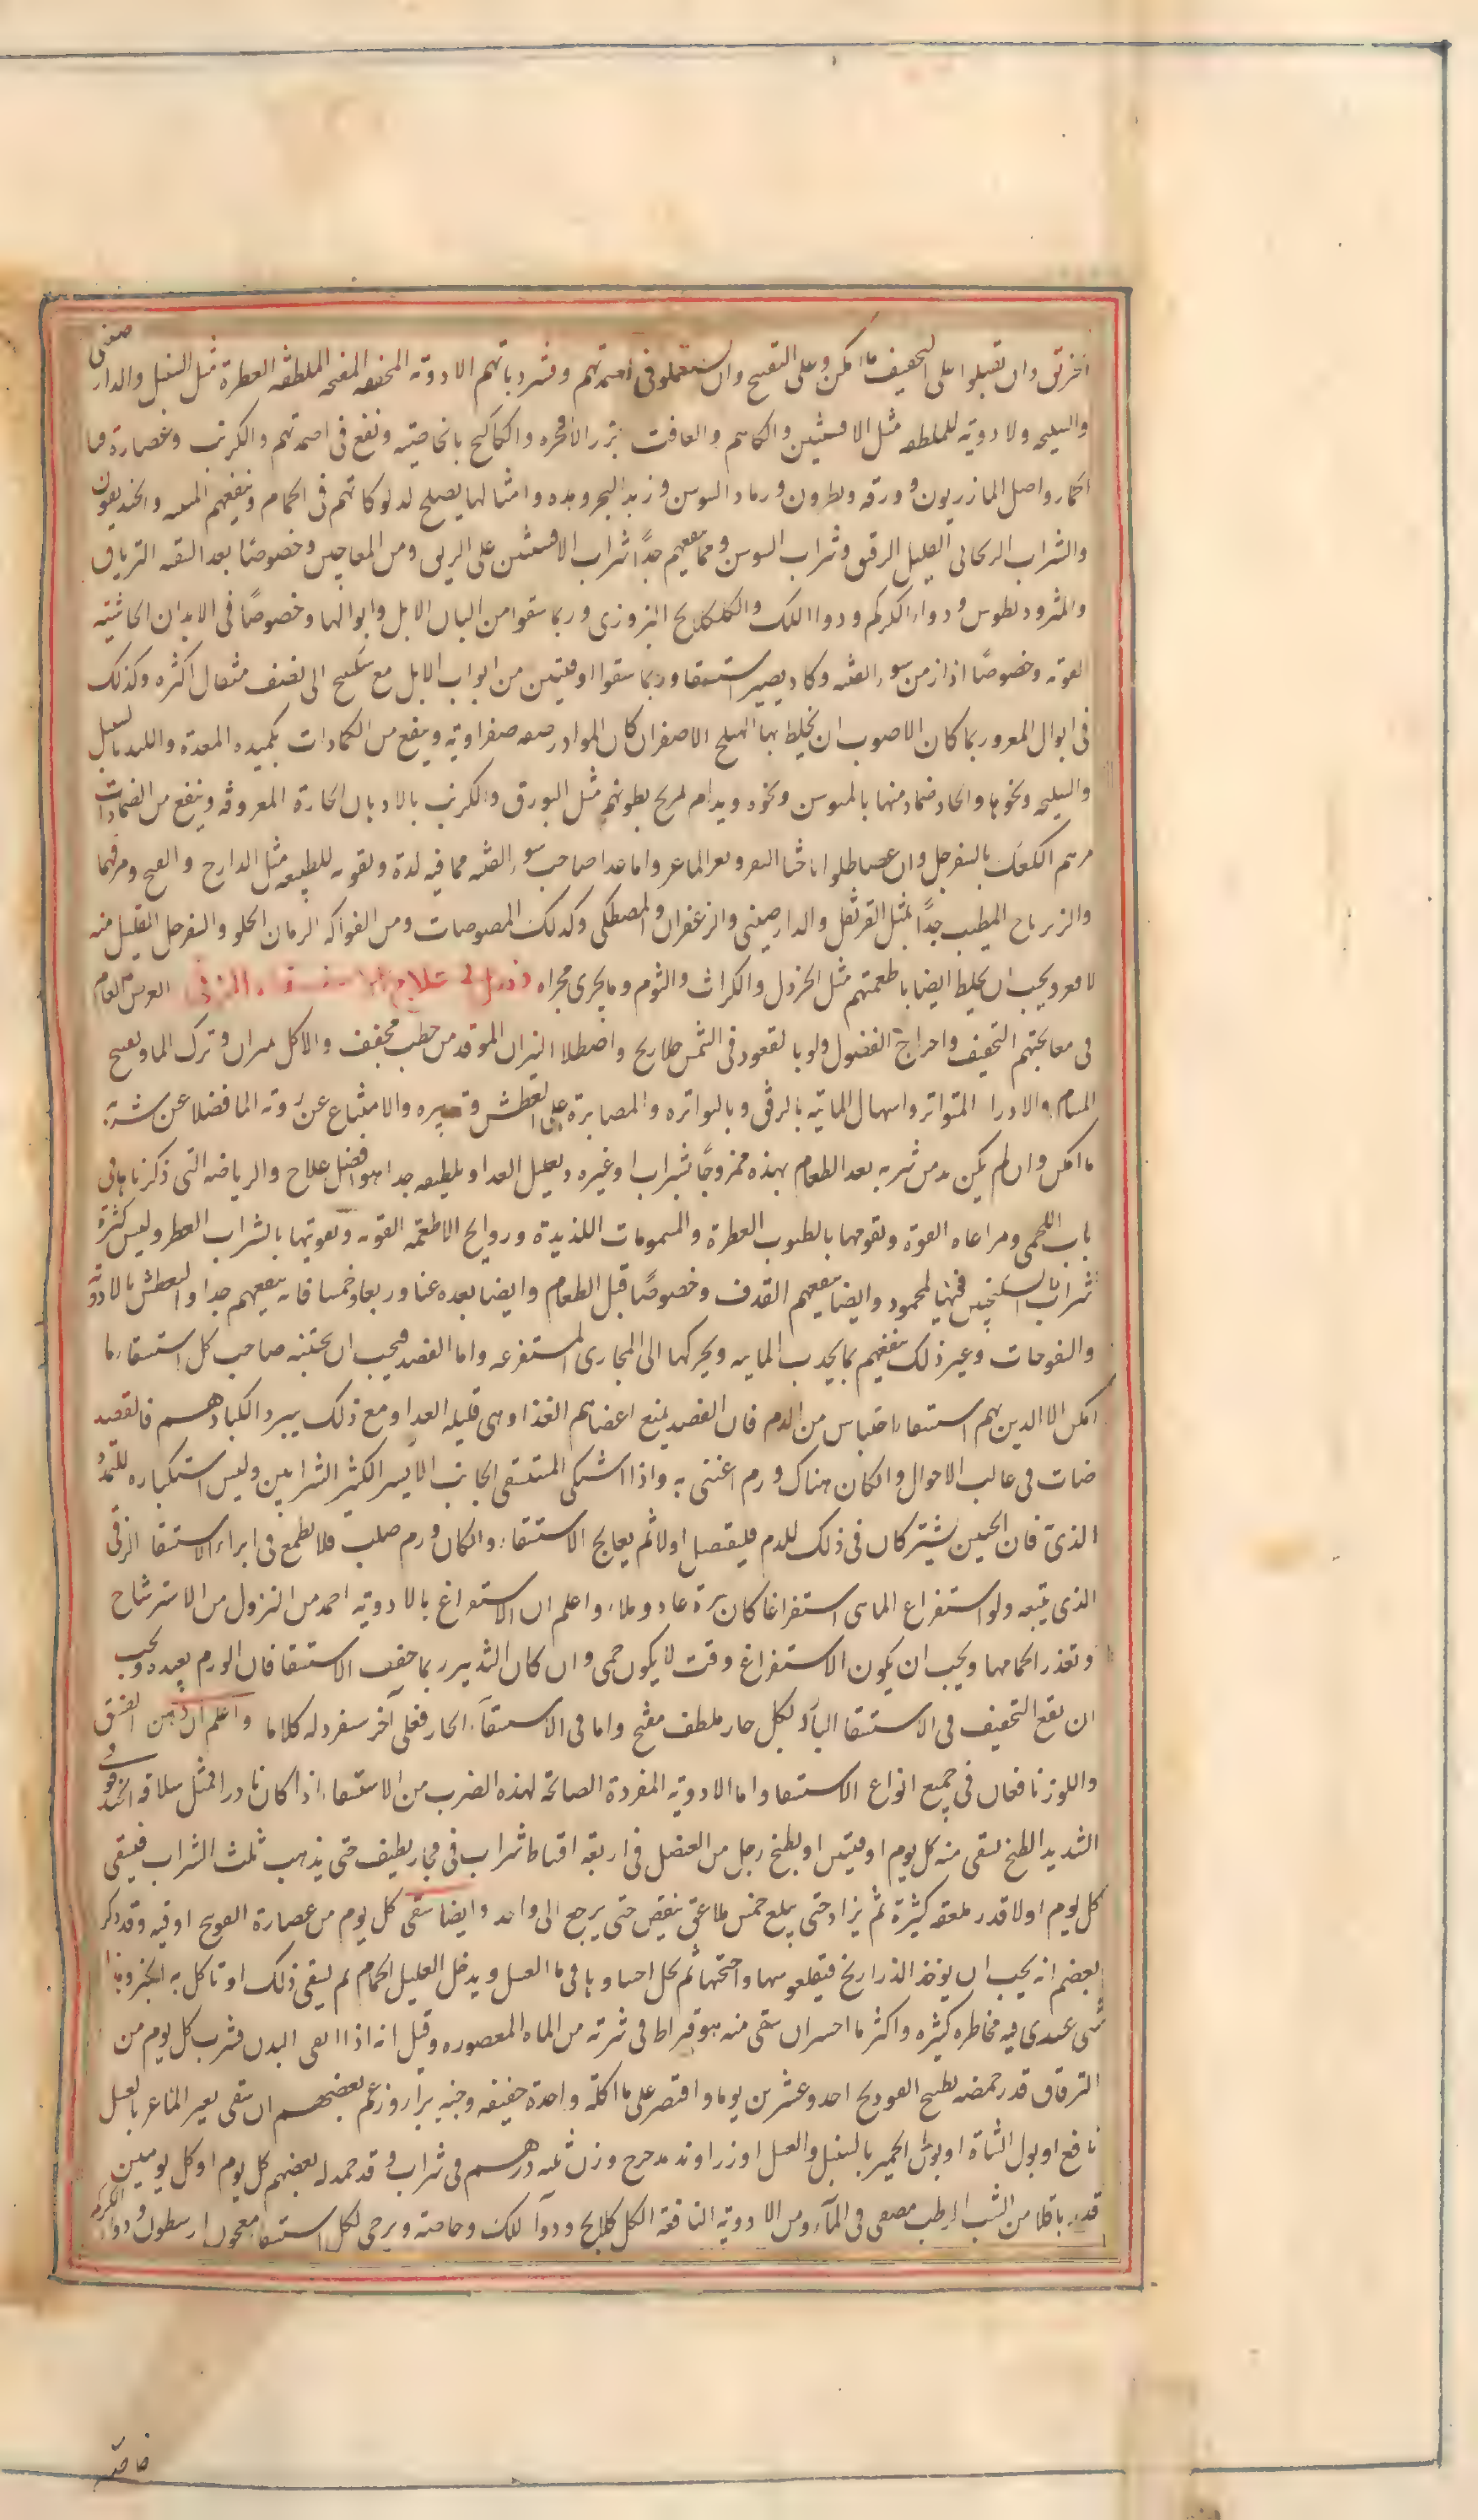 اخرتق وان تقبلوا على التجفيف ما امكن وعلى التفتيح وان يستعملوا فى اضمدتهم ومشروباتهم الادوية المجففه المفتحه الملطفه العطرة مثل السنبل والدار صينى
والسليخه والادوية الملطفه مثل الافسنتين والكاشم والغافت بزر الانجره والكاكنج بالخاصيته وتفع فى اضمدتهم والكرنب وعصارة قثا
الحمار واصل المازريون وورقه ونطرون ورماد السوسن وزبد البحر وهذه وامثالها يصلح لدلوكاتهم فى الحمام وينفعهم الميبه والخنديقون
والشراب الريحانى القليل الرقيق وشراب السوسن ومما ينفعهم جدًا شراب الافسنتين على الريق ومن المعاجين وخصوصًا بعد التنقيه الترياق
والمثروديطوس ودواء الكركم ودواء اللك والكلكلانج البزورى وربما سقوا من البان الابل وابوالها وخصوصًا فى الابدان الجاشيته
القويه وخصوصًا اذا ازمن سوء القنيه وكاد يصير استسقاء وربما سقوا اوقيتين من ابوال الابل مع سكبينج الى نصف مثقال اكثره وكذلك
فى ابوال المعز وربما كان الاصوب ان يخلط بها الهليلج الاصفر ان كان المواد رقيقه صفراويه وينفع من الكمادات تكميد المعدة والكبد بالسنبل
والسليخه ونحوها واتخاذ ضماد منها بالميسوسن ونحوه ويدام تمريخ بطونهم بمثل البورق والكرنب بالادهان الحارة المعروفه وينفع من الضمادات
مرهم الكعك بالسفرجل وان عصى طلوا باخثاء البقر وبعر الماعز واما غذا صاحب سوء القنيه مما فيه لذة وتقويه للطبيعه مثل الدراج والقبج ومرقهما
والزيرباج المطيب جدًا بمثل القرنفل والدارصينى والزعفران والمصطكى وكذلك المصوصات ومن الفواكه الرمان الحلو والسفرجل القليل منه
لا يضر ويجب ان يخلط ايضا باطعمتهم مثل الخردل والكراث والثوم وما يجرى مجراه فصل فى علاج الاستسقاء الزقى الغرض العام
فى معالجتهم التجفيف واخراج الفضول ولو بالقعود فى الشمس حلاريح واصطلا النيران الموقده من حطب مجفف والاكل بميزان وترك الما وتفتيح
المسام والادرار المتواتر واسهال المائيه بالرفق وبالتواتر والمصابرة على العطش وتدبيره والامتناع عن رؤية الما فضلا عن شربه
ما امكن وان لم يكن بد من شربه بعد الطعام بمدة ممزوجًا بشراب او غيره وتقليل الغداء وتلطيفه جدا هو افضل علاج والرياضه التى ذكرناها فى
باب اللحمى ومراعاة القوة وتقويتها بالطيوب العطرة والمشمومات اللذيذة وروائح الاطعمه القويه وتقويتها بالشراب العطر وليس كثرة
شراب السكنجبين فيها بالمحمود وايضا ينفعهم القذف وخصوصًا قبل الطعام وايضا بعده غبا وربعا وخمسا فانه ينفعهم جدا والتعطش بالادوية
والنفوخات وغير ذلك ينفعهم بما يجذب المائيه ويحركها الى المجارى المستفرغه واما الفصد فيجب ان يجتنبه صاحب كل استسقاء ما
امكن الا الذين بهم استسقاء احتباس من الدم فان الفصد يمنع اعضاهم الغذا وهى قليله الغدا ومع ذلك يبرد اكبادهم فالفصد
ضات فى غالب الاحوال والكان هناك ورم اعتنى به واذا اشتكى المستسقى الجانب الايسر الكثير الشرايين وليس استكباره للتمدد
الذى فان الجنبين يشتركان فى ذلك للدم فليفصل اولا ثم يعالج الاستسقاء والكان ورم صلب فلا تطمع فى ابراء الاستسقا الزقى
الذى يتبعه ولو استفراغ المائى استفراغا كان مرة عاد وملاء واعلم ان الاستفراغ بالادوية احمد من البزول من الاسترشاح
وتعذر الحامها ويجب ان يكون الاستفراغ وقت لا يكون حمى وان كان التدبير ربما خفف الاستسقا فان الورم يعيده ويجب
ان يقع التجفيف فى الاستسقا البارد بكل حار ملطف مفتح واما فى الاستسقاء الحار فعلى آخر سنفرد له كلاما واعلم ان دهن الفستق
واللوز نافعان فى جميع انواع الاستسقا واما الادويه المفردة الصالحة لهذه الضرب من الاستسقاء اذا كان نادرا فمثل سلاقة الخندقوقى
الشديد الطبخ تسقى منه كل يوم اوقيتين او يطبخ رجل من العنصل فى اربعة اقساط شراب فى فخار نظيف حتى يذهب ثلث الشراب فيسقى
كل يوم اولا قدر ملعقه كثيرة ثم يزاد حتى يبلغ خمس ملاعق ينقص حتى يرجع الى واحد وايضا يسقى كل يوم من عصارة الفوينج اوقيه وقد ذكر
بعضهم انه يجب ان يوخذ الذراريح فيقلع روسها واجنحتها ثم تجعل اجسادها فى ما العسل ويدخل العليل الحمام ثم يسقى ذلك او تاكل به الخبز وهذا
شى عندى فيه مخاطره كثيره واكثر ما اجسر ان يسقى منه هو قيراط فى شربة من المياه المعصوره وقيل انه اذا نقى البدن فشرب كل يوم من
الترياق قدر حمصه بطبيخ الفودنج احد وعشرين يوما واقتصر على ما اكلة واحدة خفيفه وجبه برأ وزعم بعضهم ان سقى بعر الماعز بالعسل
نافع او بول الشاة او بول الحمير بالسنبل والعسل او زراوند مدحرج وزن ثلثه درهم فى شراب وقد حمد له بعضهم كل يوم او كل يومين
قدر باقلا من الشب الرطب مصفى فى الماء ومن الادوية النافعة الكلكلانج ودواء اللك وخاصته ويرجى لكل استسقا معجون ارسطون ودواء الكركم
خاصة